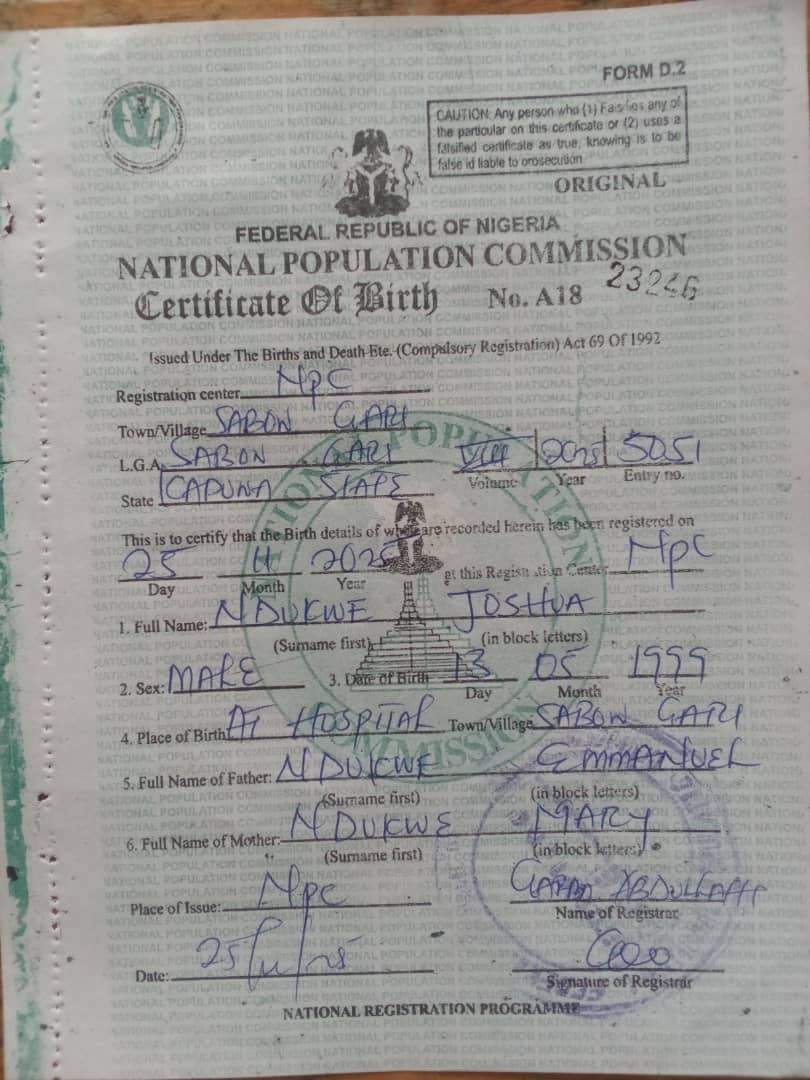 FORM D.2
CAUTION: Any person who (1) Falsifies any of
the particular on this certificate or (2) uses a
falsified certificate as true, knowing is to be
false id liable to orosecution
ORIGINAL
FEDERAL REPUBLIC OF NIGERIA
NATIONAL POPULATION COMMISSION
Certificate Of Birth No. A18 23246
Issued Under The Births and Death Ete. (Compulsory Registration) Act 69 Of 1992
Registration center NPC
Town/Village SABON GARI
L.G.A SABON GARI VIII 2025 5051
Volume Year Entry no.
State CADUNA STATE
This is to certify that the Birth details of who are recorded herein has been registered on
25 11 2025 at this Registration Center NPC
Day Month Year
1. Full Name: NDUKWE JOSHUA
(Surname first) (in block letters)
2. Sex: MALE 3. Date of Birth 13 05 1999
Day Month Year
4. Place of Birth AT HOSPITAL Town/Village SABON GARI
5. Full Name of Father: NDUKWE EMMANUEL
(Surname first) (in block letters)
6. Full Name of Mother: NDUKWE MARY
(Surname first) (in block letters)
Place of Issue: NPC
Name of Registrar
Date: 25/11/25
Signature of Registrar
NATIONAL REGISTRATION PROGRAMME